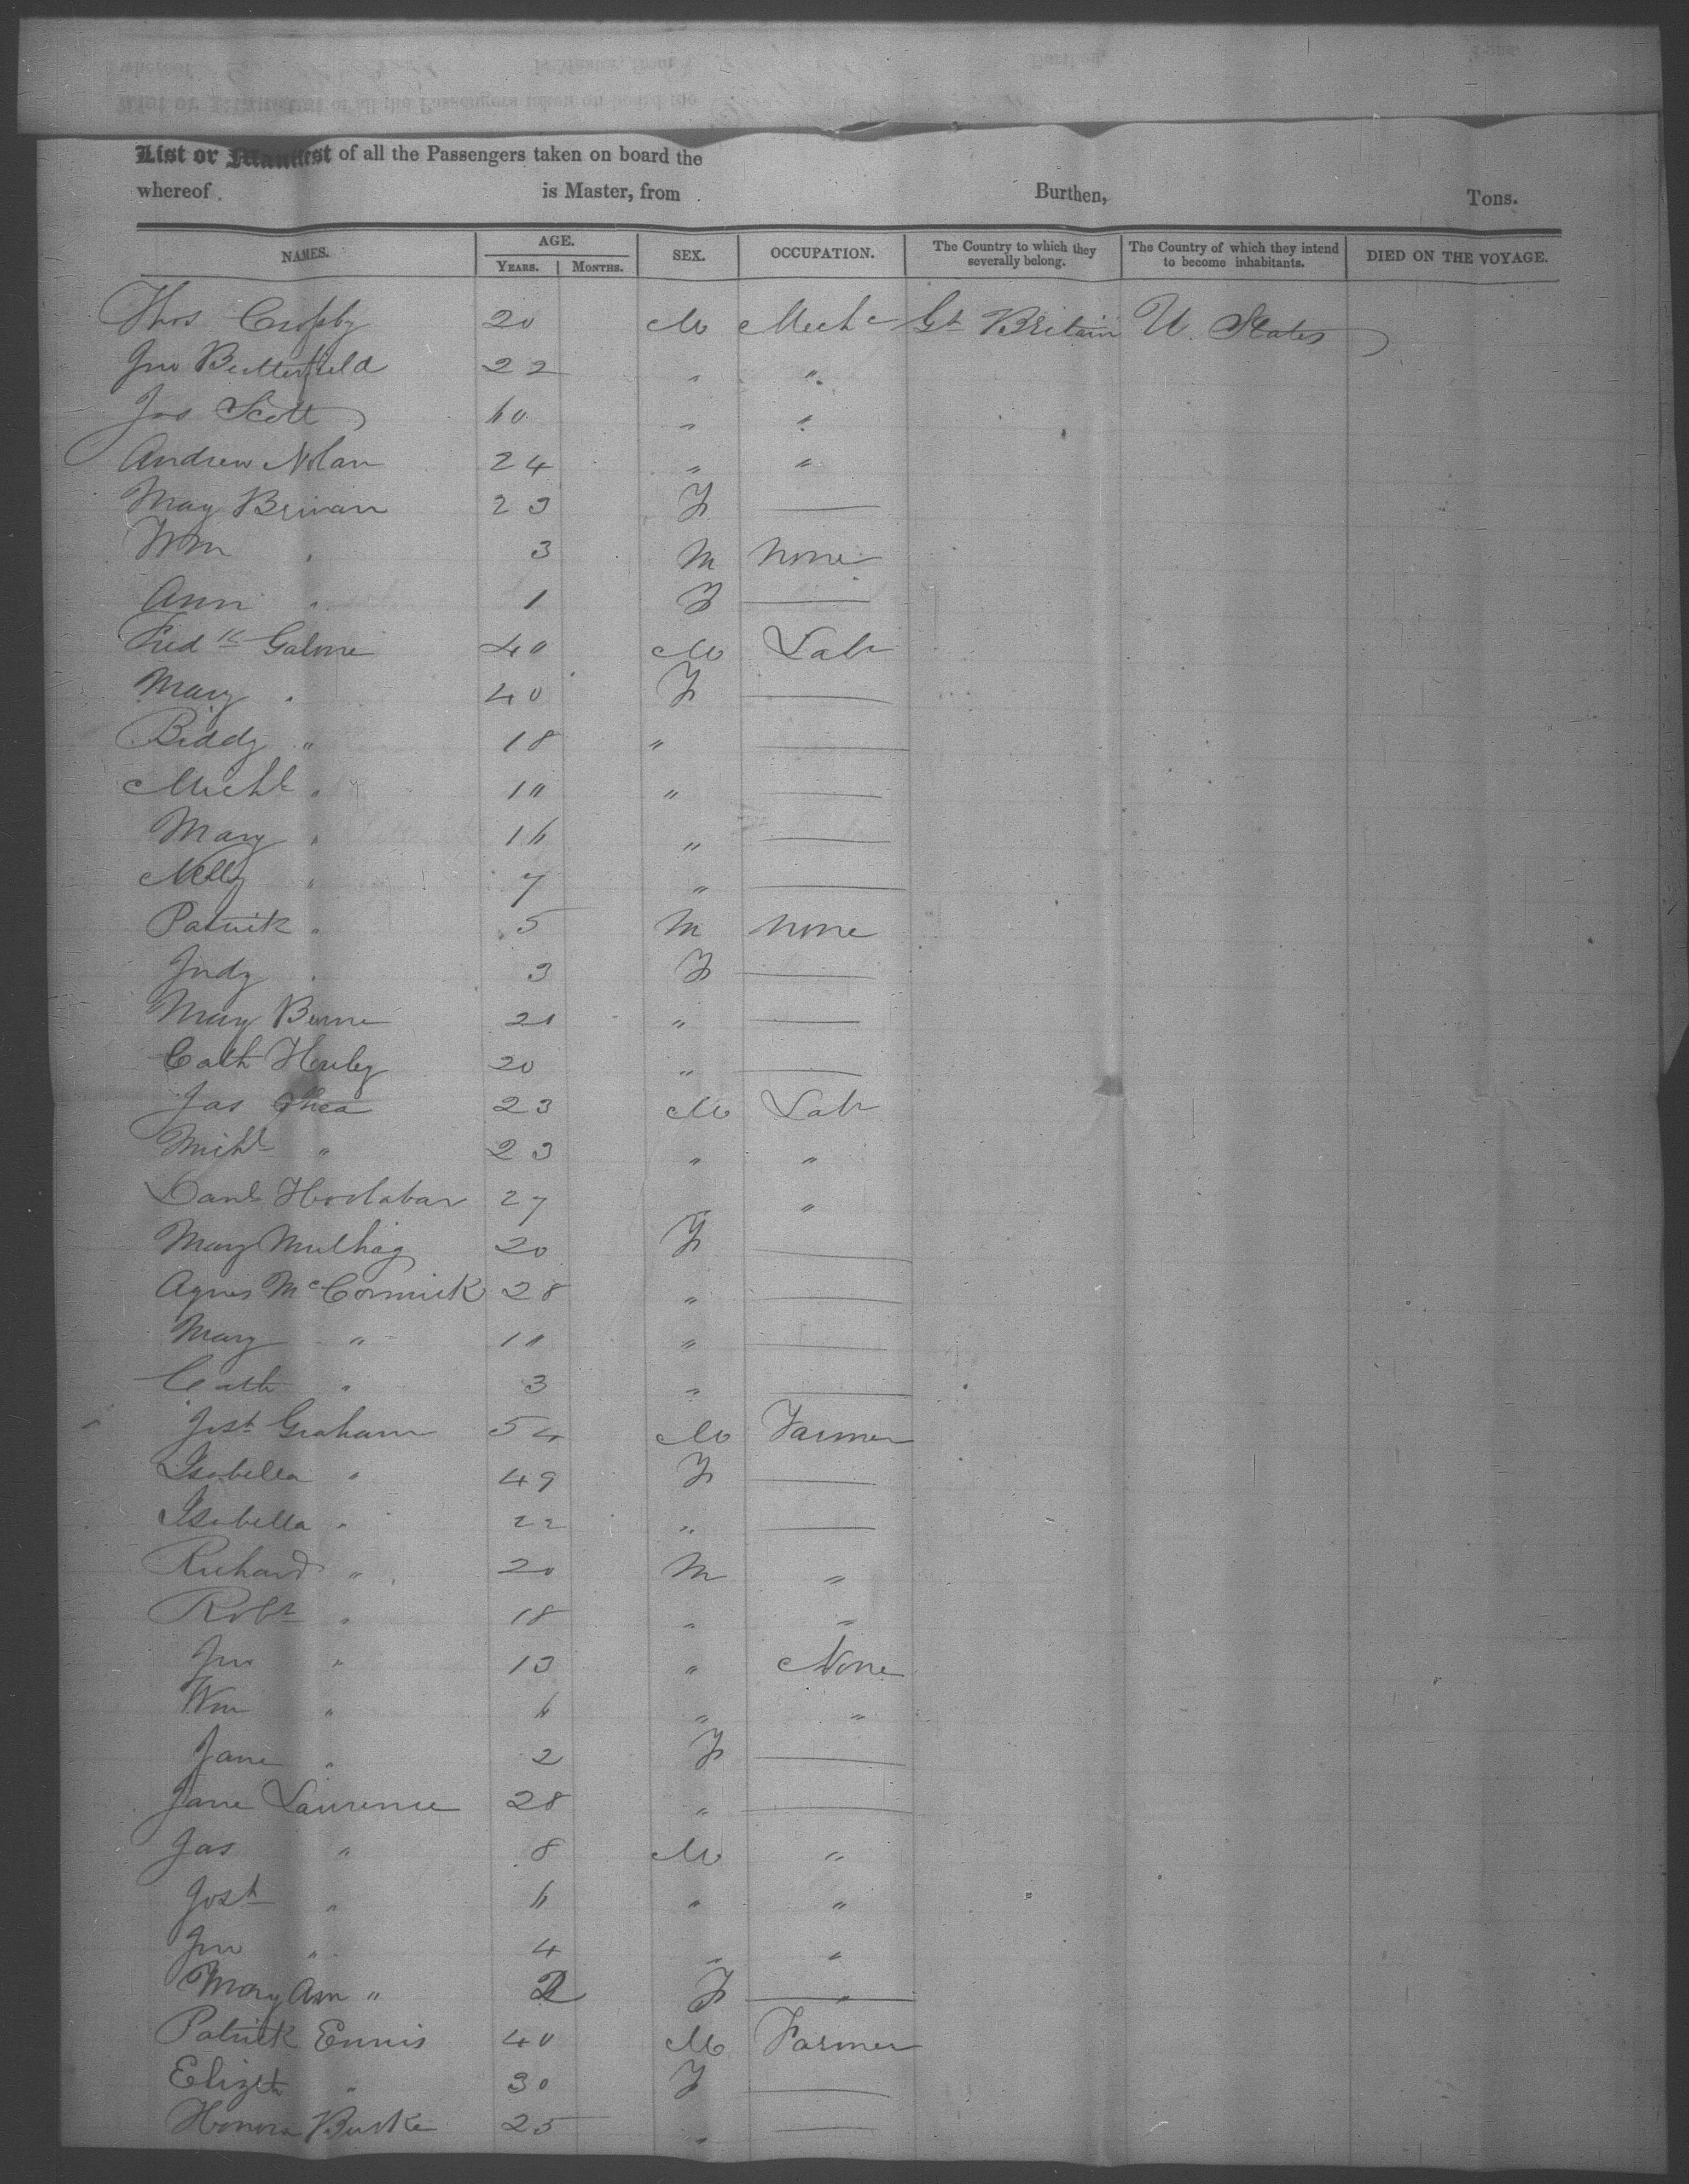 List or Manifest of all the Passengers taken on board the
whereof is Master, from Burthen, Tons.
NAMES. AGE. YEARS. MONTHS. SEX. OCCUPATION. The Country to which they severally belong. The Country of which they intend to become inhabitants. DIED ON THE VOYAGE.
Thos Crosby 20 M Mechc Gt Britain U. States
Jno Butterfield 22 " "
Jas Scott 60 " "
Andrew Nolan 24 " "
May Brivan 23 F —
Wm " 3 M None
Ann " 1 F —
Fredk Galone 40 M Labr
Mary " 40 F —
Biddy " 18 " —
Michl " 10 " —
Mary " 16 " —
Nelly " 7 " —
Patrick " 5 M None
Judy " 3 F —
Mary Burne 20 " —
Cath Hurley 20 " —
Jas Shea 23 M Labr
Michl " 23 " "
Danl 27 " "
Mary 20 F —
Agnes McCormick 28 " —
Mary " 10 " —
Cath " 3 " —
Josh Graham 54 M Farmer
Isabella " 49 F —
Isabella " 22 " —
Richard " 20 M "
Robt " 18 " "
Jno " 13 " None
Wm " 6 " "
Jane " 2 F —
Jane Laurence 28 " —
Jas " 8 M "
Josh " 6 " "
Jno " 4 " "
Mary Ann " 2 F —
Patrick Ennis 40 M Farmer
Elizth " 30 F —
Honora Burke 25 " —